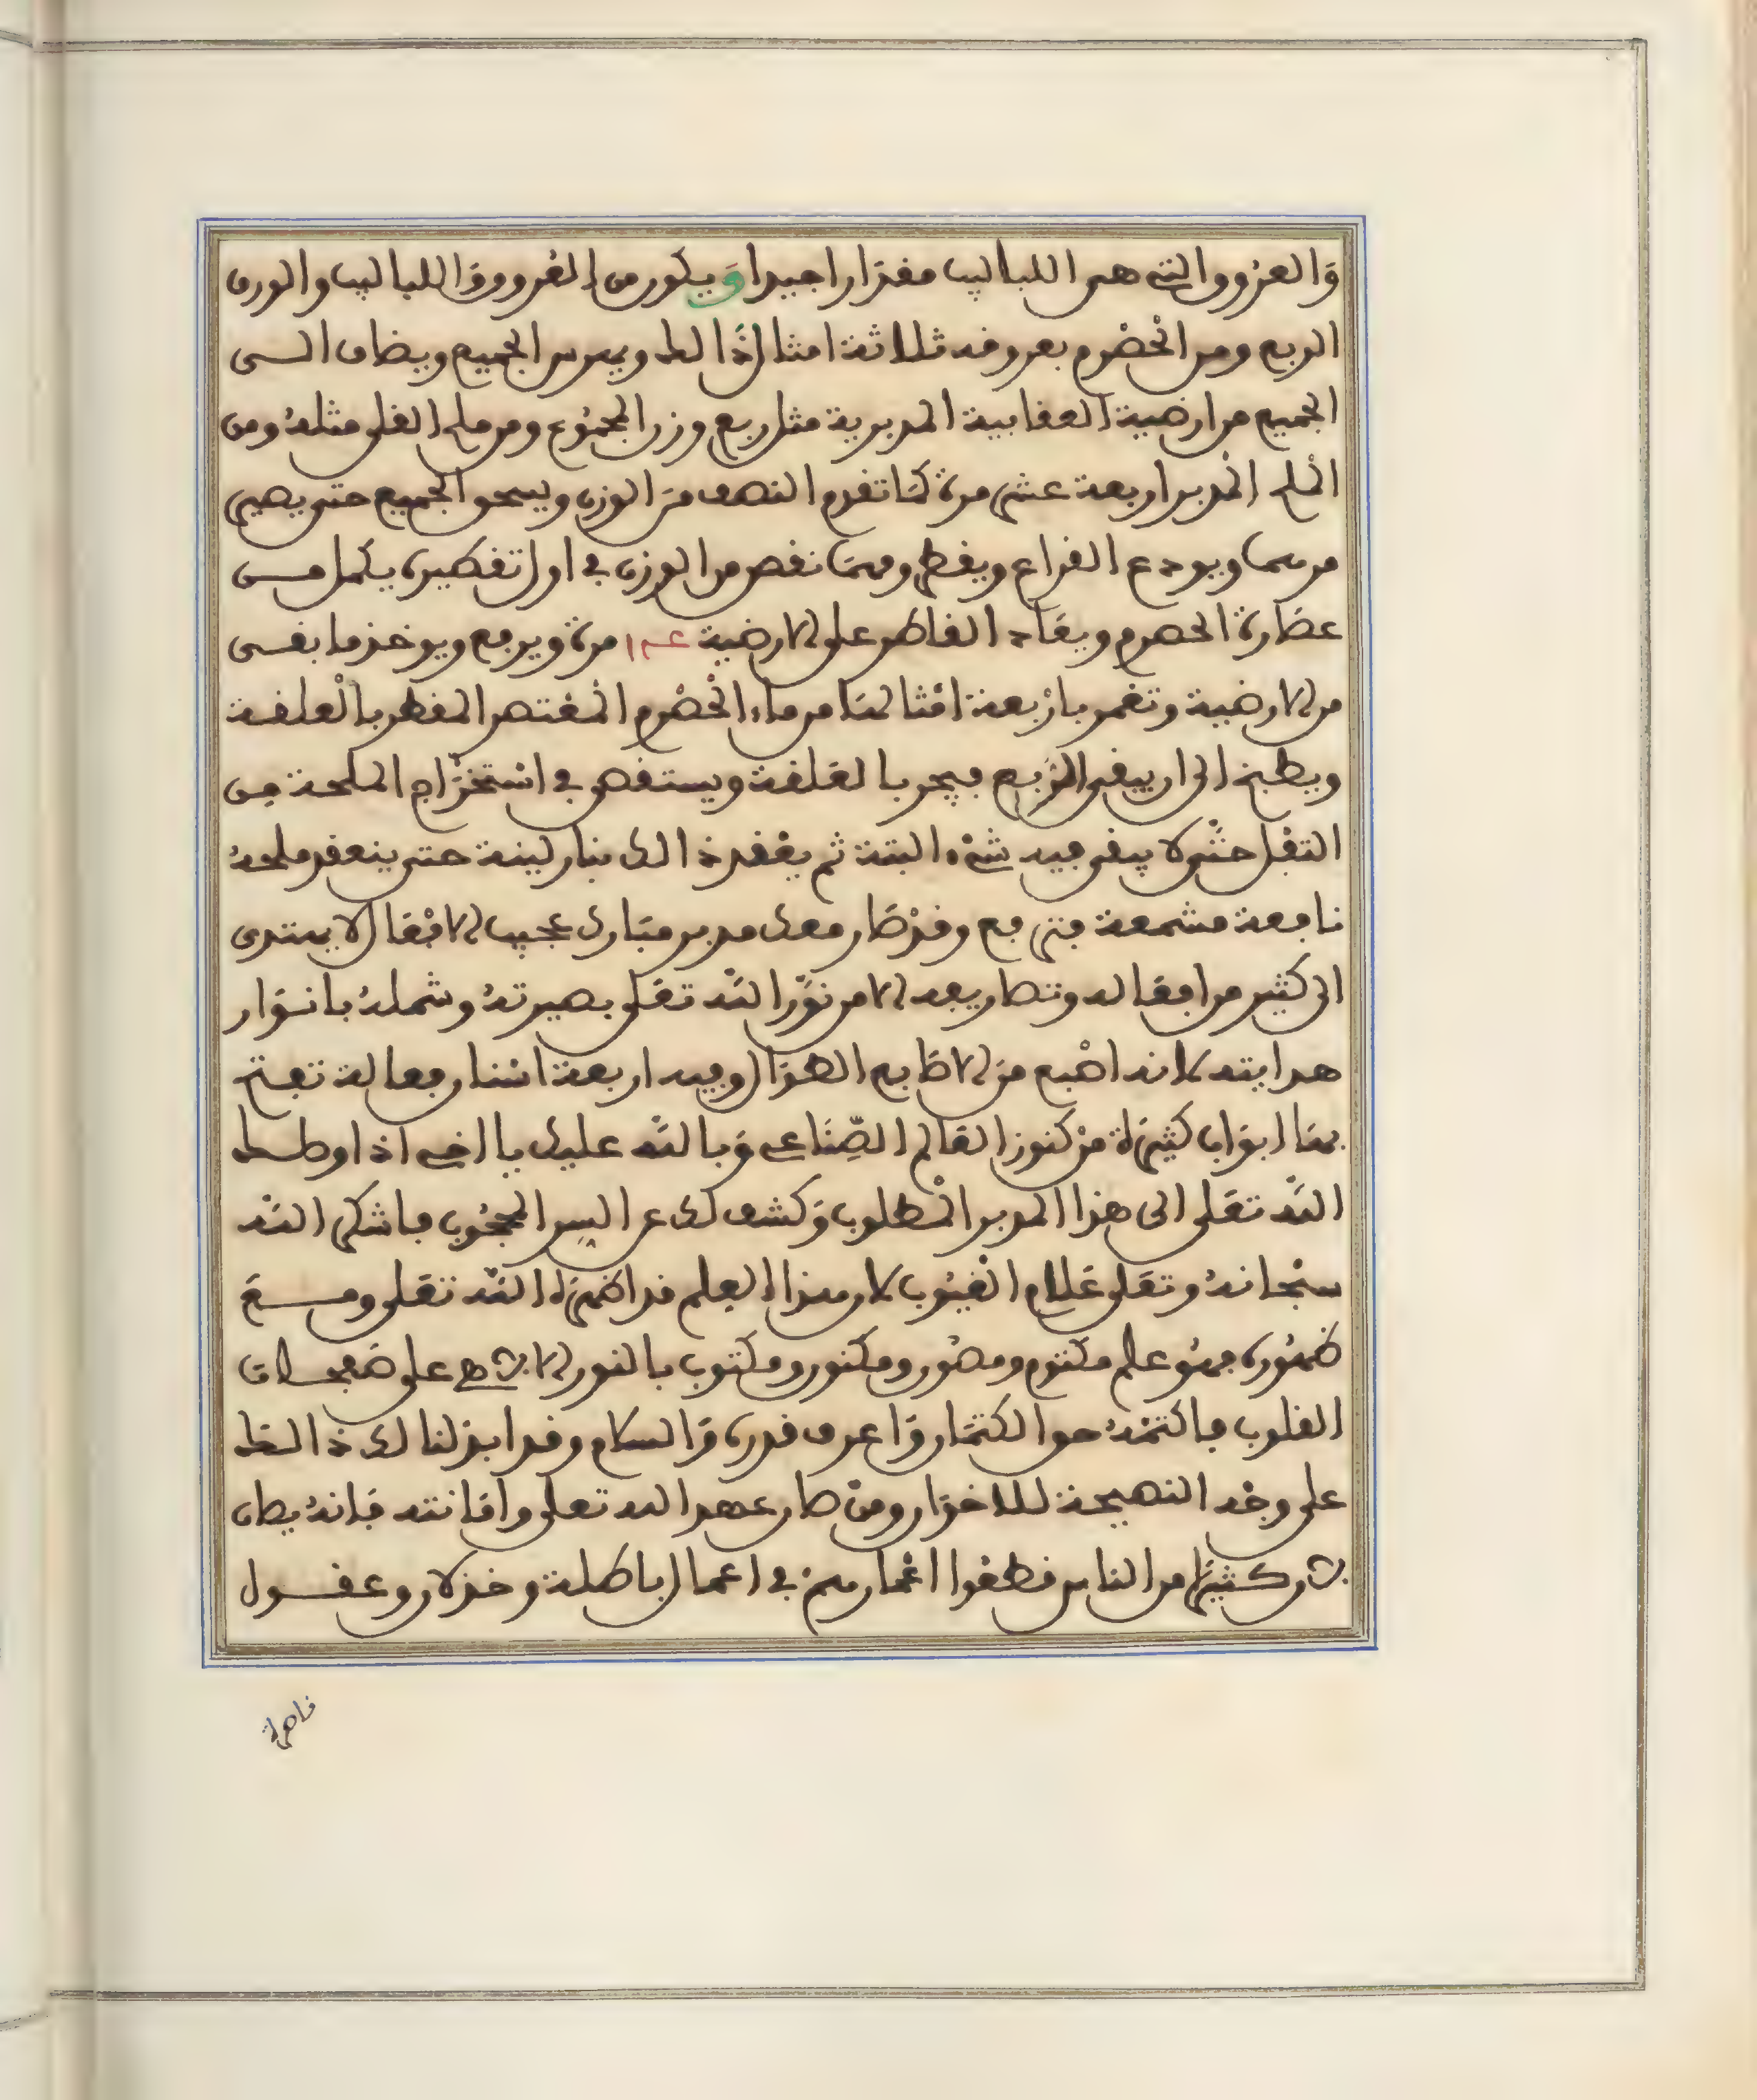 والعروق التي هي اللباليب مقدارا جيدا ويكون من العروق واللباليب والورق
الربع ومن الحصرم بعروقه ثلاثة امثال ذالك ويهرس الجميع ويضاف الى
الجميع من ارضية العقابية المدبرية مثل ربع وزن المجموع ومن ملح القلي مثله ومن
الملح المدبر اربعة عشر مرة كما تقدم النصف من الوزن ويسحق الجميع حتى يصير
مرهما ويودع القراع ويقطر ومهما نقص من الوزن في اول تقطيره يكمل من
عصارة الحصرم ويعاد القاطر على الارضية مرة ويرفع ويوخذ ما بقى
من الارضية وتغمر باربعة امثالها من ماء الحصرم المعتصر المقطر بالعلقة
ويطبخ الى ان يبقى الربع فيجر بالعلقة ويستقصى في استخراج الملحة من
التفل حتى لا يبقى فيه شيء البتة ثم يعقد ذالك بنار لينة حتى ينعقد ملحه
نافعة مشمعة فترفع وقد صار معك مدبر مبارك عجيب الافعال لا يهتدى
الى كثير من افعاله وتصاريفه الا من نور الله تعلى بصيرته وشمله بانوار
هدايته لانه اصبع من الاصابع الهزال وفيه اربعة اسنان فعالة تفتح
بها ابواب كثيرة من كنوز العالم الصناعي وبالله عليك يا اخي اذا اوصلك
الله تعلى الى هذا المدبر المطلوب وكشف لك عن السر المحجوب فاشكر الله
سبحانه وتعلى علام الغيوب لان هذا العلم قد اظهره الله تعلى ومع
ظهوره فهو علم مكتوم ومصور ومكنون ومكتوب بالنور الابدع على صفحات
القلوب فاكتمه حق الكتمان واعرف قدره والسلام وقد ابذلنا لك ذالك
على وجه النصيحة للاخوان ومن صان عهد الله تعلى وامانته فانه يصان
لان كثيرا من الناس قطعوا اعمارهم في اعمال باطلة وخذلان وعقول
قاصرة